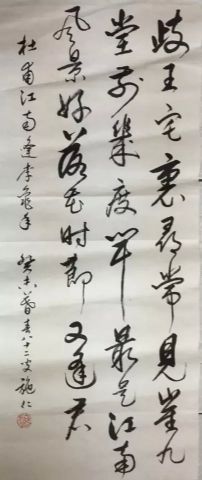 歧王宅裏尋常見崔九
堂前幾度聞最是江南
風景好落花时節又逢君
杜甫江南逢李龜年 癸未暮春八十二叟施仁